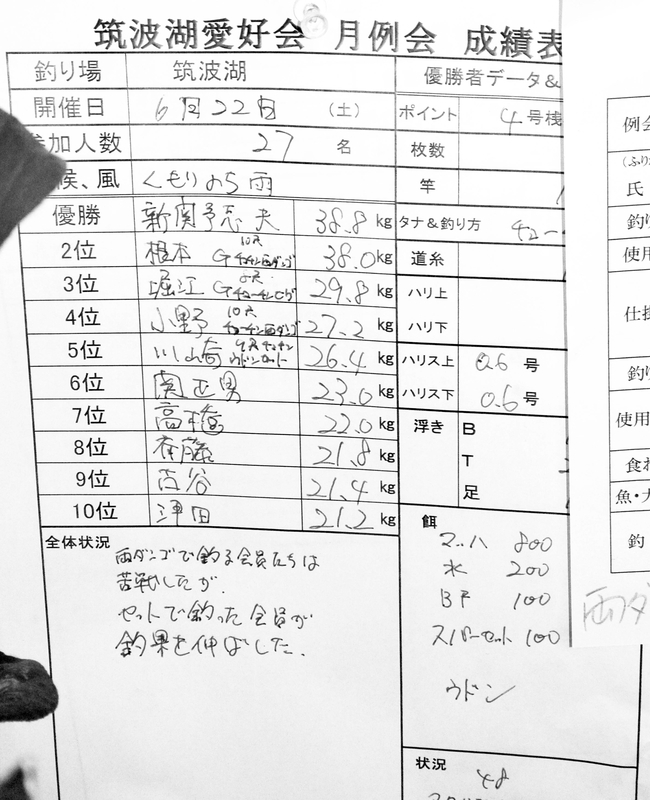 筑波湖愛好会 月例会 成績表
釣り場 筑波湖
開催日 6月22日 （土）
参加人数 27 名
候、風 くもりのち雨
優勝 38.8 kg
2位 根本 10尺 38.0 kg
3位 堀江 29.8 kg
4位 小野 10尺 27.2 kg
5位 川崎 26.4 kg
6位 関正男 23.0 kg
7位 高橋 22.0 kg
8位 斉藤 21.8 kg
9位 古谷 21.4 kg
10位 津田 21.2 kg
全体状況
両ダンゴで釣る会員たちは
苦戦したが、
セットで釣った会員が
釣果を伸ばした。
優勝者データ&
ポイント 4 号桟
枚数
竿
タナ&釣り方 チョー
道糸
ハリ上
ハリ下
ハリス上 0.6 号
ハリス下 0.6 号
浮き B
T
足
餌
マッハ 800
水 200
BF 100
スーパーセット 100
ウドン
状況
48
例会
（ふり
氏
釣り
使用
仕掛
釣り
使用
食わ
魚・大
釣
両ダ